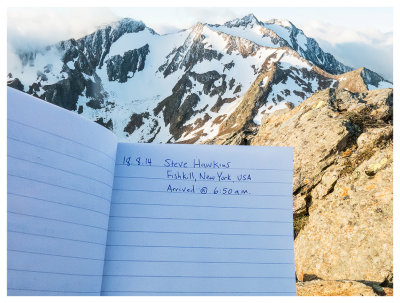 18.8.14 Steve Hawkins
Fishkill, New York, USA
Arrived @ 6:50 a.m.